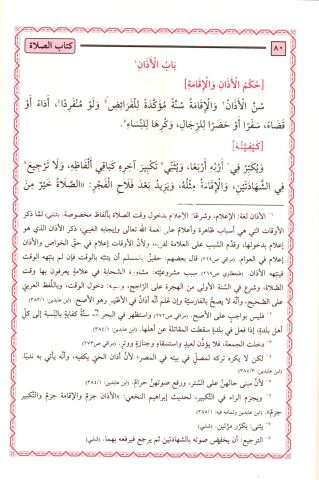 ٨٠
كتاب الصلاة
بَابُ الْأَذَانِ١
[حُكْمُ الْأَذَانِ وَالْإِقَامَةِ]
سُنَّ الْأَذَانُ٢ وَالْإِقَامَةُ سُنَّةً مُؤَكَّدَةً لِلْفَرَائِضِ٣ وَلَوْ مُنْفَرِدًا٤، أَدَاءً أَوْ
قَضَاءً، سَفَرًا أَوْ حَضَرًا لِلرِّجَالِ، وَكُرِهَا لِلنِّسَاءِ٥.
[كَيْفِيَّتُهُ]
وَيُكَبِّرُ فِي أَوَّلِهِ أَرْبَعًا، وَيُثَنِّي٦ تَكْبِيرَ آخِرِهِ كَبَاقِي أَلْفَاظِهِ، وَلَا تَرْجِيعَ٨
فِي الشَّهَادَتَيْنِ، وَالْإِقَامَةُ مِثْلُهُ، وَيَزِيدُ بَعْدَ فَلَاحِ الْفَجْرِ: «الصَّلَاةُ خَيْرٌ مِنَ
١- الأذان لغة: الإعلام، وشرعًا: الإعلام بدخول وقت الصلاة بألفاظ مخصوصة. لما ذكر
الأوقات التي هي أسباب ظاهرة وأعلام على نعمة الله تعالى وإيجابه الغيبي، ذكر الأذان الذي هو
إعلام بدخولها، وقدّم السبب على العلامة لقربه، ولأنّ الأوقات إعلام في حقّ الخواص والأذان
إعلام في العوام. قال بعضهم: حقيق بالمسلم أن يتنبّه بالوقت فإن لم ينبّهه الوقت
فينبّهه الأذان. سبب مشروعيّته: مشاورة الصّحابة في علامة يعرفون بها وقت
الصلاة، وشرع في السّنة الأولى من الهجرة على الرّاجح، دخول الوقت، وباللّفظ العربي
على الصّحيح، وأنّه لا يصحّ بالفارسيّة وإن عُلم أنّه أذان في الأظهر، وهو الأصح.
٢- فليس بواجب على الأصح. واستظهر في البحر أنّه سنّة كفاية بالنّسبة إلى كلّ
أهل بلدة، إذا فعل في بلدة سقطت المقاتلة عن أهلها.
٣- دخلت الجمعة، فلا يؤذّن لعيد واستسقاء وجنازة ووتر.
٤- لكن لا يكره تركه لمصلّ في بيته في المصر؛ لأنّ أذان الحيّ يكفيه، وأنّه يأتي به ندبًا.
٥- لأنّ مبنى حالهنّ على السّتر، ورفع صوتهنّ حرامٌ.
٦- ويجزم الراء في التكبير، لحديث إبراهيم النخعي: «الأذان جزمٌ والإقامة جزمٌ والتّكبير
جزمٌ».
٧- يثني: يكرّر مرّتين.
٨- الترجيع: أن يخفض صوته بالشهادتين ثم يرجع فيرفعه بهما.